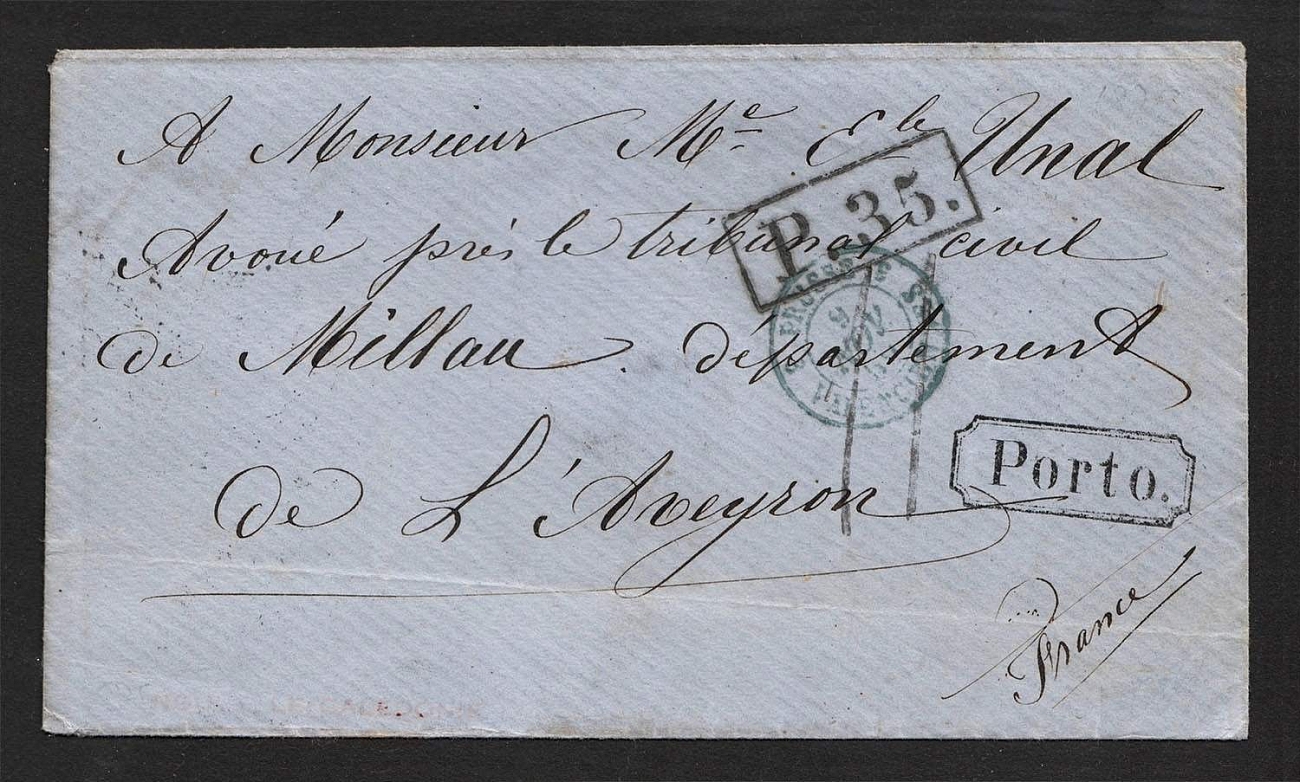 A Monsieur Me Ele Unal
P. 35.
Avoué près le tribunal civil
de Millau département
de L'Aveyron
Porto.
France